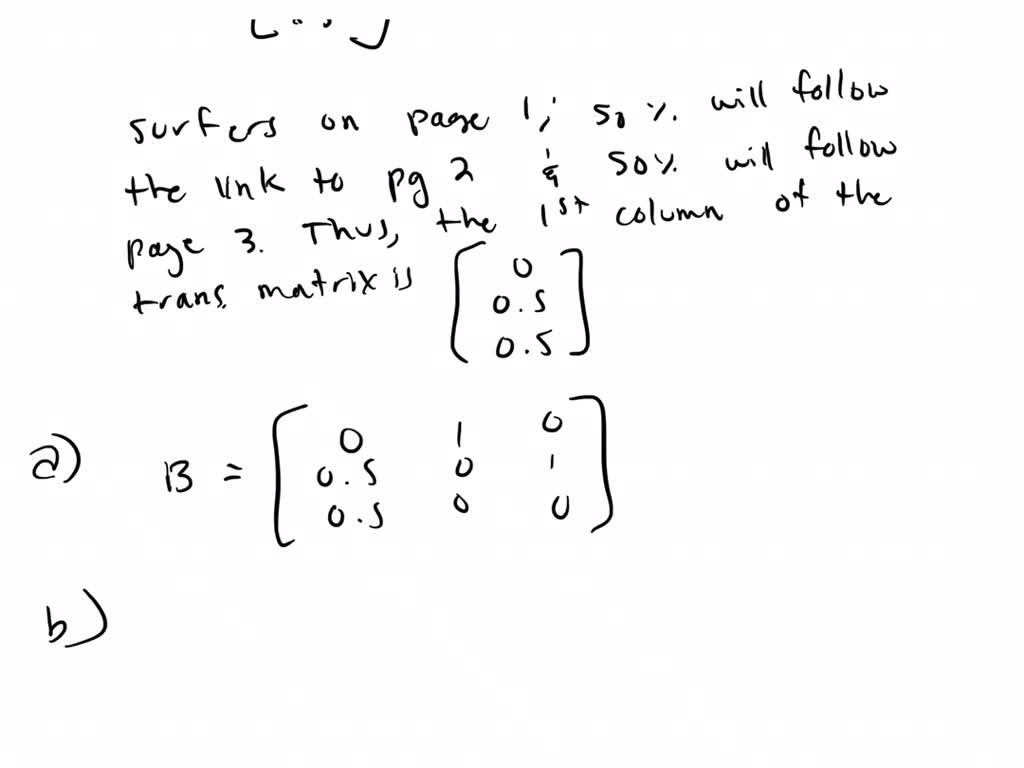 surfers on page 1, 50 %. will follow
the link to pg 2 & 50% will follow
page 3. Thus, the 1st column of the
trans. matrix is [ 0
0.5
0.5 ]
a) B = [ 0 1 0
0.5 0 1
0.5 0 0 ]
b)